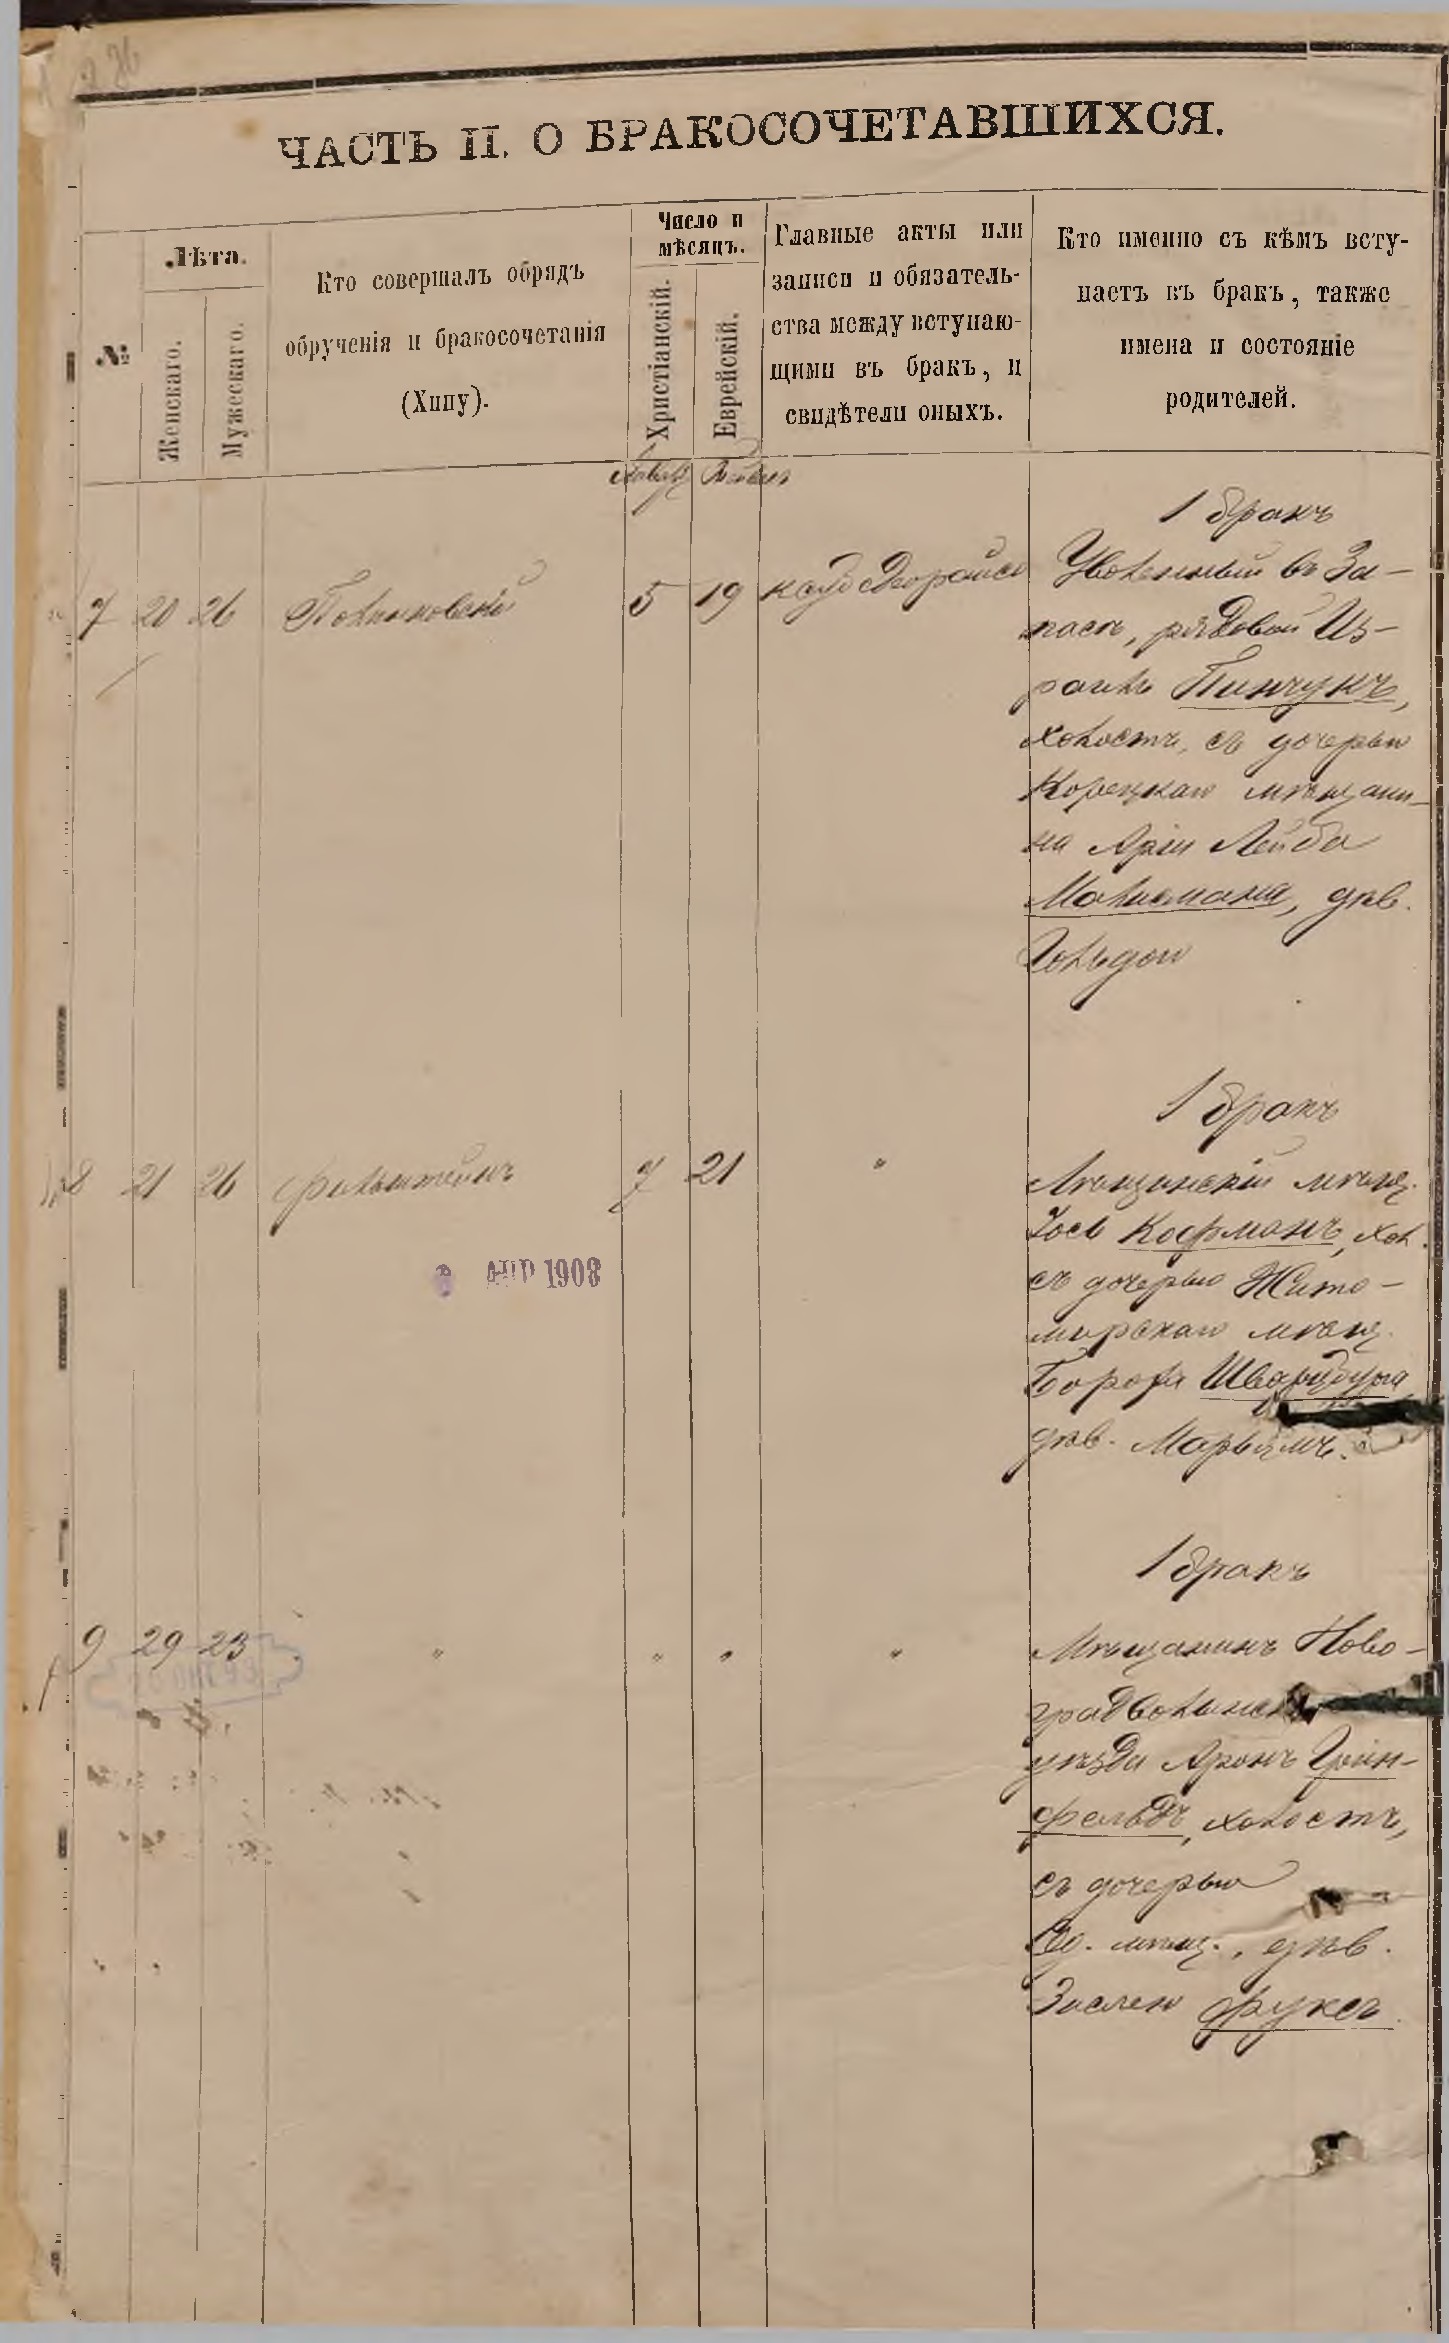 ЧАСТЬ II. О БРАКОСОЧЕТАВШИХСЯ.
№
Лѣта.
Женскаго.
Мужескаго.
Кто совершалъ обрядъ
обрученія и бракосочетанія
(Хипу).
Число и
мѣсяцъ.
Христіанскій.
Еврейскій.
Главные акты или
записи и обязатель-
ства между вступаю-
щими въ бракъ, и
свидѣтели оныхъ.
Кто именно съ кѣмъ всту-
паетъ въ бракъ, также
имена и состояніе
родителей.
7 20 26
5 19
1 бракъ
Уволенный въ За-
пасъ, рядовой Из-
раиль Пинчукъ,
холостъ, съ дочерью
Корецкаго мѣщани-
на Арiи Лейба
дѣв.
Гольдою
8 21 26 Фильштейнъ 7 21 "
1 бракъ
мѣщ.
Іосъ Кофманъ, хол.
съ дочерью Жито-
мирскаго мѣщ.
Бороха Шварцбурда
дѣв. Марьямъ.
АПР 1903
9 29 23 " " " "
1 бракъ
Мѣщанинъ Ново-
градволынск
уѣзда Аронъ Грин-
фельдъ, холостъ,
съ дочерью
мѣщ., дѣв.
Фуксъ.